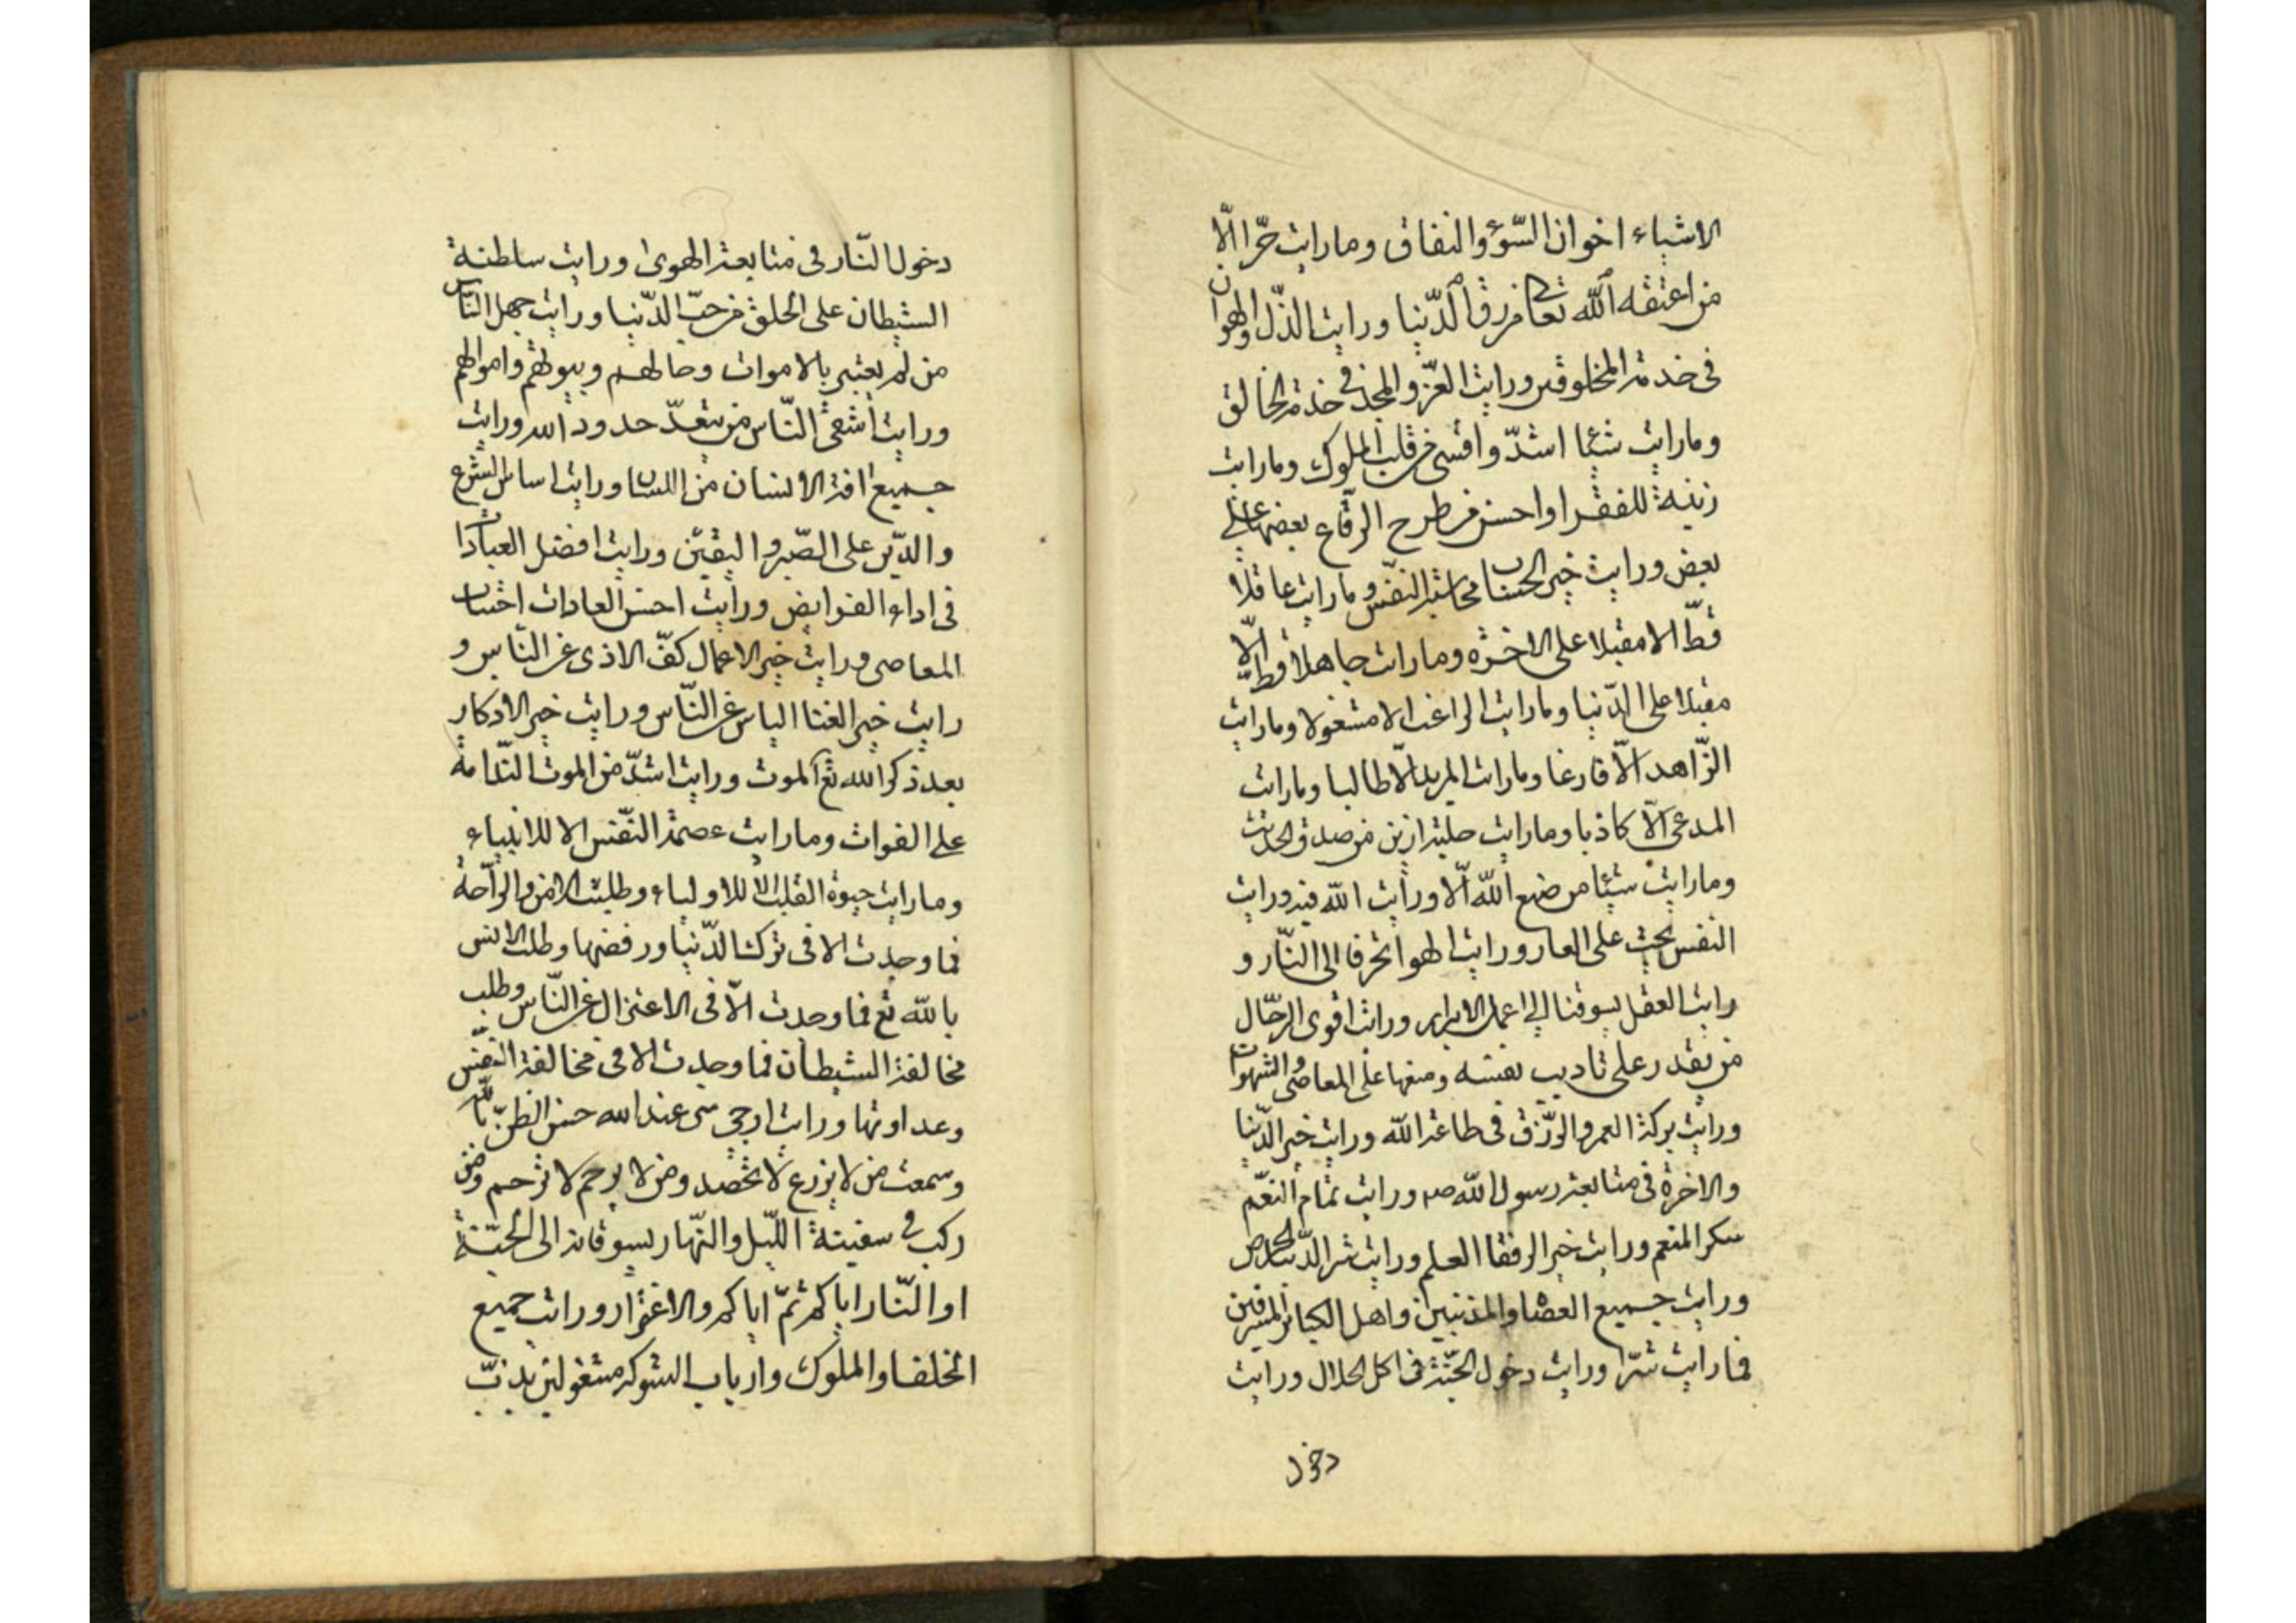 الاشياء اخوان السّوء والنفاق وما رايت حرّا الّا
من اعتقه الله تعالى من رق الدّنيا ورايت الذّل والهوان
فى خدمة المخلوقين ورايت العزّ والمجد فى خدمة الخالق
وما رايت شيئا اشدّ واقسى من قلب الملوك وما رايت
زينة للفقرا واحسن من طرح الرقاع بعضها على
بعض ورايت خير الحسنات محاسبة النفس وما رايت عاقلا
قطّ الا مقبلا على الاخرة وما رايت جاهلا قطّ الّا
مقبلا على الدّنيا وما رايت الراغب الا مشغولا وما رايت
الزّاهد الّا فارغا وما رايت المريد الّا طالبا وما رايت
المدعى الّا كاذبا وما رايت حلية ازين من صدق الحديث
وما رايت شيئا من صنع الله الّا ورايت الله فيه ورايت
النفس تحث على العار ورايت الهوا تحرفا الى النّار و
رايت العقل يسوقنا الى اعمال الابرار ورايت اقوى الرجّال
من يقدر على تاديب نفسه ومنعها على المعاصى والشهوات
ورايت بركة العمر والرّزق فى طاعة الله ورايت خير الدّنيا
والاخرة فى متابعة رسول الله صم ورايت تمام النعّم
سكر المنعم ورايت خير الرفقا العلم ورايت شر الدّنيا الحرص
ورايت جميع العصاة والمذنبين واهل الكبائر المسرفين
فما رايت شرّا ورايت دخول الجنّة فى اكل الحلال ورايت
دخول
دخول النّار فى متابعة الهوى ورايت ساطنة
الشيطان على الخلق من حبّ الدّنيا ورايت جهل النّاس
من لم يعتبر بالاموات وحالهم وبيوتهم واموالهم
ورايت اشقى النّاس من يتعدّ حدود الله ورايت
جميع افة الانسان من اللسان ورايت اساس الشرع
والدّين على الصّبر واليقين ورايت افضل العبادات
فى اداء الفرايض ورايت احسن العادات اجتناب
المعاصى ورايت خير الاعمال كفّ الاذى عن النّاس و
رايت خير الغنا الياس عن النّاس ورايت خير الاذكار
بعد ذكر الله تع الموت ورايت اشدّ من الموت النّدامة
على الفوات وما رايت عصمة النّفس الا للانبياء
وما رايت حيوة القلب الا للاولياء وطلبت الامن والرّاحة
فما وجدت الا فى ترك الدّنيا ورفضها وطلبت الانس
بالله تع فما وجدت الّا فى الاعتزال عن النّاس وطلب
مخالفة الشيطان فما وجدت الا فى مخالفة النّفس
وعداوتها ورايت ارجى شى عند الله حسن الظنّ بالله
وسمعت من لا يزرع لا يحصد ومن لا يرحم لا ترحم ومن
ركب فى سفينة اللّيل والنّهار يسوقانه الى الجنّة
او النّار اياكم ثمّ اياكم والاغترار ورايت جميع
الخلفا والملوك وارباب الشوكة مشغولين بذنب